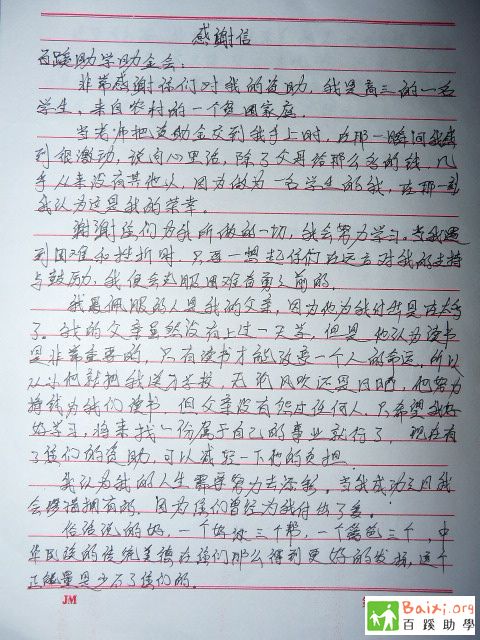 感謝信
百蹊助学助金会:
非常感谢你们对我的资助,我是高三的一名
学生,来自农村的一个贫困家庭.
当老师把资助金交到我手上时,在那一瞬间我感
到很激动,说句心里话,除了父母给那么多的钱,几
乎从来没有其他人,因为做为一名学生的我,在那一刻
我认为这是我的荣幸。
谢谢你们为我所做的一切,我会努力学习。当我遇
到困难和挫折时,只要一想起你们在远方对我的支持
与鼓励,我便会克服困难奋勇前的.
我最佩服的人是我的父亲,因为他为我付出是在太多
了。我的父亲虽然没有上过一天学,但是他认为读书
是非常重要的,只有读书才能改变一个人的命运,所以
从小他就把我送去学校,无论风吹还是日晒,他努力
挣钱为我们读书,但父亲没有怨过任何人,只希望我好
好学习,将来找一份属于自己的事业就行了,现在有
了你们的资助,可以减轻一下他的负担.
我认为我的人生需要努力去添彩。当我成功之日我
会拥有的,因为你们曾经为我付出了爱。
俗话说的好,一个好汉三个帮,一个篱笆三个,中
华民族的传统美德在你们那么得到更好的发扬,这个
正能量是少不了你们的。
JM
Baixi.org
百蹊助學